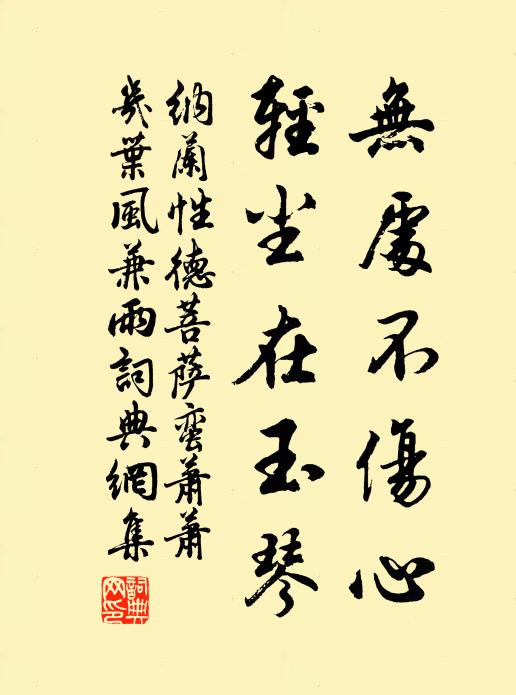 無處不傷心
輕尘在玉琴
納蘭性德菩萨蠻蕭蕭
幾葉風兼雨詞典網集
詞典
网印